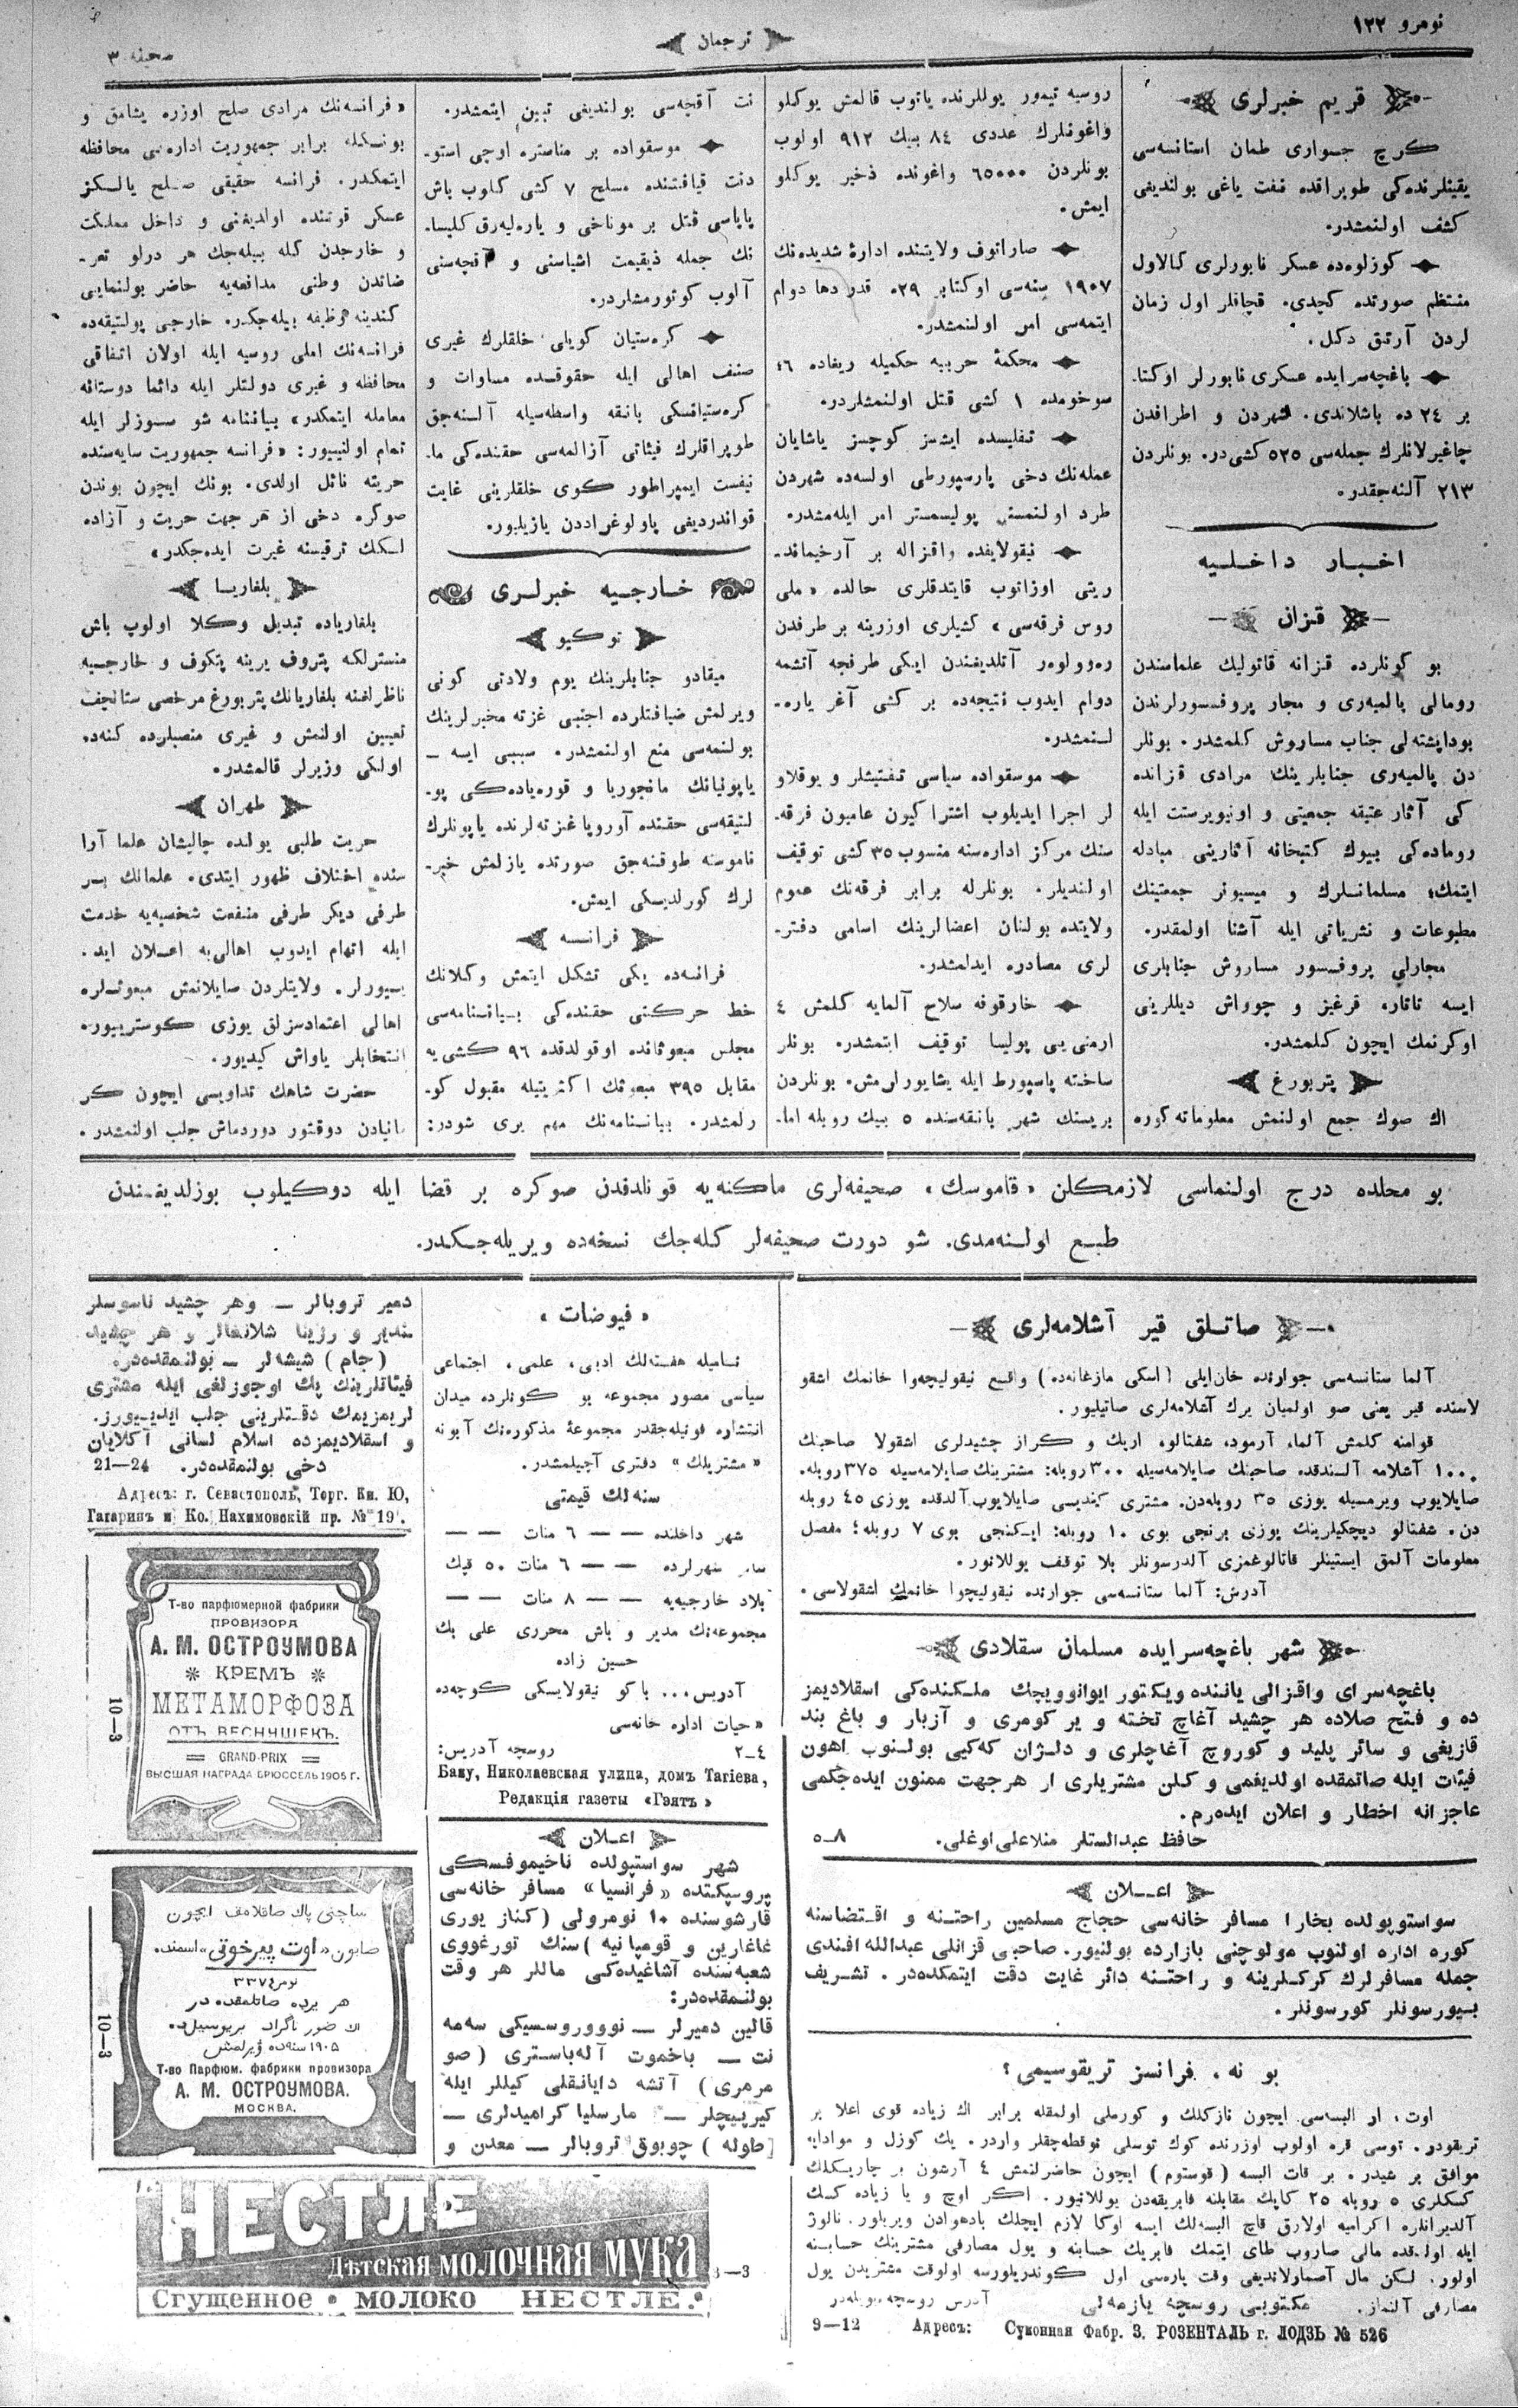 نومرو ١٢٢
ترجمان
صحیفه ٣
قریم خبرلری
كرچ جواری طمان استانسه‌سی
یقینلرنده‌كی طوپراقده نفت یاغی بولندیغی
كشف اولنمشدر.
كوزلوه‌ده عسكر نابورلری كالاول
منتظم صورتده كچدی. قچاقلر اول زمان
لردن آرتق دكل.
باغچه‌سرایده عسكری نابورلر اوكتا-
بر ٢٤ ده باشلاندی. شهردن و اطرافدن
چاغیرلانلرك جمله‌سی ٥٢٥ كشی‌در. بونلردن
٢١٣ آلنه‌جقدر.
اخبار داخلیه
قزان
بو كونلرده قزانه قاتولیك علماسندن
رومالی پالمیه‌ری و مجار پروفسورلرندن
بوداپشته‌لی جناب مساروش كلمشدر. بونلر
دن پالمیه‌ری جنابلرینك مرادی قزانده
كی آثار عتیقه جمعیتی و اونیویرستت ایله
روماده‌كی بیوك كتبخانه آثارینی مبادله
ایتمك؛ مسلمانلرك و میسیونر جمعیتینك
مطبوعات و نشریاتی ایله آشنا اولمقدر.
مجارلی پروفسسور مساروش جنابلری
ایسه تاتار، قرغیز و چوواش دیللرینی
اوكرنمك ایچون كلمشدر.
پتربورغ
اك صوك جمع اولنمش معلوماته كوره
روسیه تیمور یوللرنده یاتوب قالمش یوكلو
واغونلرك عددی ٨٤ بیك ٩١٢ اولوب
بونلردن ٦٥٠٠٠ واغونده ذخیر یوكلو
ایمش.
صاراتوف ولایتنده ادارهٔ شدیده‌نك
١٩٠٧ سنه‌سی اوكتابر ٢٩، قدر دها دوام
ایتمه‌سی امر اولنمشدر.
محكمهٔ حربیه حكمیله ریغاده ٤٦
سوخومده ١ كشی قتل اولنمشلردر.
تفلیسده ایشسز كوچسز یاشایان
عمله‌نك دخی پارسپورطی اولسه‌ده شهردن
طرد اولنمسنی پولیسمستر امر ایله‌مشدر.
نیقولایفده واقزاله بر آرخیماند-
ریتی اوزاتوب قایتدقلری حالده «ملی
روس فرقه‌سی» كشیلری اوزرینه بر طرفدن
ره‌وولوه‌ر آتلدیغندن ایكی طرفجه آتشمه
دوام ایدوب نتیجه‌ده بر كشی آغر یاره-
لنمشدر.
موسقواده سیاسی تفتیشلر و یوقلاو
لر اجرا ایدیلوب اشتراكیون عامیون فرقه-
سنك مركز اداره‌سنه منسوب ٣٥ كشی توقیف
اولندیلر. بونلرله برابر فرقه‌نك عموم
ولایتده بولنان اعضالرینك اسامی دفتر-
لری مصادره ایدلمشدر.
خارقوفه سلاح آلمایه كلمش ٤
ارمنی‌یی پولیسا توقیف ایتمشدر. بونلر
ساخته پاسپورط ایله یشایورلرمش. بونلردن
بریسنك شهر بانقه‌سنده ٥ بیك روبله اما-
نت آقچه‌سی بولندیغی تبین ایتمشدر.
موسقواده بر مناستره اوچی استو-
دنت قیافتنده مسلح ٧ كشی كلوب باش
پاپاسی قتل بر موناخی و یاره‌لیه‌رق كلیسا-
نك جمله ذیقیمت اشیاسنی و آقچه‌سنی
آلوب كوتورمشلردر.
كره‌ستیان كویلی خلقلرك غیری
صنف اهالی ایله حقوقسده مساوات و
كره‌ستیانسكی بانقه واسطه‌سیله آلنه‌جق
طوپراقلرك فیئاتی آزالمه‌سی حقنده‌كی ما-
نیفست ایمپراطور كوی خلقلرینی غایت
قواندردیغی پاولوغراددن یازیلیور.
خارجیه خبرلری
توكیو
میقادو جنابلرینك یوم ولادتی كونی
ویرلمش ضیافتلرده اجنبی غزته مخبرلرینك
بولنمه‌سی منع اولنمشدر. سببی ایسه —
یاپونیانك مانجوریا و قوره‌یاده‌كی پو-
لتیقه‌سی حقنده آوروپا غزته‌لرنده یاپونلرك
ناموسنه طوقنه‌جق صورتده یازلمش خبر-
لرك كورلدیكی ایمش.
فرانسه
فرانسه‌ده یكی تشكل ایتمش وكلانك
خط حركتی حقنده‌كی بیاننامه‌سی
مجلس مبعوثانده اوقولدقده ٩٦ كشی‌یه
مقابل ٣٩٥ مبعوثك اكثریتیله مقبول كو-
رلمشدر. بیاننامه‌نك مهم یری شودر:
«فرانسه‌نك مرادی صلح اوزره یشامق و
بونكله برابر جمهوریت اداره‌سی محافظه
ایتمكدر. فرانسه حقیقی صلح یالكز
عسكر قوتنده اولدیغنی و داخل مملكت
و خارجدن كله بیله‌جك هر درلو تعر-
ضاتدن وطنی مدافعه‌یه حاضر بولنمایی
كندینه وظیفه بیله‌جكدر. خارجی پولتیقه‌ده
فرانسه‌نك املی روسیه ایله اولان اتفاقی
محافظه و غیری دولتلر ایله دائما دوستانه
معامله ایتمكدر» بیاننامه شو سوزلر ایله
تمام اولنییور: «فرانسه جمهوریت سایه‌سنده
حریته نائل اولدی. بونك ایچون بوندن
صوكره دخی از هر جهت حریت و آزاده
لكك ترقیسنه غیرت ایده‌جكدر»
بلغاریا
بلغاریاده تبدیل وكلا اولوب باش
منسترلكه پتروف یرینه پتكوف و خارجیه
ناظرلغنه بلغاریانك پتربورغ مرخصی ستانچف
تعیین اولنمش و غیری منصبلرده كنه‌ده
اولكی وزیرلر قالمشدر.
طهران
حریت طلبی یولنده چالیشان علما آرا
سنده اختلاف ظهور ایتدی. علمانك بر
طرفی دیكر طرفی منفعت شخصیه‌یه خدمت
ایله اتهام ایدوب اهالی‌یه اعلان اید-
ییورلر. ولایتلردن صایلانمش مبعوثلره
اهالی اعتمادسزلق یوزی كوستریبور.
انتخابلر یاواش كیدیور.
حضرت شاهك تداویسی ایچون كر
مانیادن دوقتور دوردماش جلب اولنمشدر.
بو محلده درج اولنماسی لازمكلن «قاموسك» صحیفه‌لری ماكنه‌یه قونلدقدن صوكره بر قضا ایله دوكیلوب بوزلدیغندن
طبع اولنه‌مدی. شو دورت صحیفه‌لر كله‌جك نسخه‌ده ویریله‌جكدر.
صاتلق قیر آشلامه‌لری
آلما ستانسه‌سی جوارنده خان‌ایلی (اسكی مازغانه‌ده) واقع نیقولیچه‌وا خانمك اشقو
لاسنده قیر یعنی صو اولمیان یرك آشلامه‌لری صاتیلیور.
قوامنه كلمش آلما، آرمود، شفتالو، اریك و كراز چشیدلری اشقولا صاحبنك
١٠٠٠ آشلامه آلندقده صاحبنك صایلامه‌سیله ٣٠٠ روبله: مشترینك صایلامه‌سیله ٣٧٥ روبله.
صایلایوب ویرمسیله یوزی ٣٥ روبله‌دن. مشتری كندیسی صایلایوب آلدقده یوزی ٤٥ روبله
دن. شفتالو دیچكیلرینك یوزی برنجی بوی ١٠ روبله: ایكنجی بوی ٧ روبله؛ مفصل
معلومات آلمق ایستینلر قاتالوغمزی آلدرسونلر بلا توقف یوللانور.
آدرش: آلما ستانسه‌سی جوارنده نیقولیچوا خانمك اشقولاسی.
شهر باغچه‌سرایده مسلمان سقلادی
باغچه‌سرای واقزالی یاننده ویكتور ایوانوویچك ملكنده‌كی اسقلادیمز
ده و فتح صلاده هر چشید آغاچ تخته و یر كومری و آزبار و باغ بند
قازیغی و سائر پلید و كوروچ آغاچلری و دلیژان كه‌كیی بولنوب اهون
فیئات ایله صاتمقده اولدیغمی و كلن مشتریلری از هرجهت ممنون ایده‌جكمی
عاجزانه اخطار و اعلان ایده‌رم.
حافظ عبدالستلر منلاعلی اوغلی. ٨—٥
اعلان
سواستوپولده بخارا مسافر خانه‌سی حجاج مسلمین راحتنه و اقتضاسنه
كوره اداره اولنوپ مولوچنی بازارده بولنیور. صاحبی قزانلی عبدالله افندی
جمله مسافرلرك كركلرینه و راحتنه دائر غایت دقت ایتمكده‌در. تشریف
بیورسونلر كورسونلر.
بو نه، فرانسز تریقوسیمی؟
اوت، ار البسه‌سی ایچون نازكلك و كورملی اولمقله برابر اك زیاده قوی اعلا بر
تریقودر. توسی قره اولوب اوزرنده كوك توسلی نوقطه‌چقلر واردر. پك كوزل و موادایه
موافق بر شیدر. بر قات البسه (قوستوم) ایچون حاضرلنمش ٤ آرشون بر چاریكلك
كسكلری ٥ روبله ٢٥ كاپك مقابلنه فابریقه‌دن یوللانیور. اكر اوچ و یا زیاده كسك
آلدیرانلره اكرامیه اولارق قاچ البسه‌لك ایسه اوكا لازم ایچلك بادهوادن ویریلور. نالوژ
ایله اولدقده مالی صاروب طای ایتمك فابریك حسابنه و یول مصارفی مشترینك حسابنه
اولور. لكن مال آصمارلاندیغی وقت پاره‌سی اول كوندریلورسه اولوقت مشتریدن یول
مصارفی آلنماز. مكتوبی روسچه یازمه‌لی آدرس روسچه
9—12 Адресъ: Суконная Фабр. З. РОЗЕНТАЛЬ г. ЛОДЗЬ № 526
«فیوضات»
نامیله هفته‌لك ادبی، علمی، اجتماعی
سیاسی مصور مجموعه بو كونلرده میدان
انتشاره قونیله‌جقدر مجموعهٔ مذكوره‌نك آبونه
«مشتریلك» دفتری آچیلمشدر.
سنه‌لك قیمتی
شهر داخلنده — — ٦ منات — —
سائر شهرلرده — — ٦ منات ٥٠ قپك
بلاد خارجیه‌یه — — ٨ منات — —
مجموعه‌نك مدیر و باش محرری علی بك
حسین زاده
آدریس... باكو نیقولایسكی كوچه‌ده
«حیات اداره خانه‌سی
روسچه آدریس: ٤—٢
Баку, Николаевская улица, домъ Тагіева,
Редакція газеты «Гэятъ»
اعلان
شهر سواستپولده ناخیموفسكی
پروسپكتده «فرانسیا» مسافر خانه‌سی
قارشوسنده ١٠ نومرولی (كناز یوری
غاغارین و قومپانیه) سنك تورغووی
شعبه‌سنده آشاغیده‌كی ماللر هر وقت
بولنمقده‌در:
قالین دمیرلر — نوووروسسیكی سه‌مه
نت — باخموت آله‌باستری (صو
مرمری) آتشه دایانقلی كیللر ایله
كیرپیچلر — مارسلیا كرامیدلری —
(طوله) چوبوق تروبالر — معدن و
دمیر تروبالر — وهر چشید ناسوسلر
و رزینا شلانغالر و هر چشید
(جام) شیشه‌لر — بولنمقده‌در.
فیئاتلرینك پك اوجوزلغی ایله مشتری
لریمزیمك دقتلرینی جلب ایدیبورز.
و اسقلادیمزده اسلام لسانی آكلایان
دخی بولنمقده‌در. 24—21
Адресъ: г. Севастополь, Торг. Кн. Ю,
Гагаринъ и Ко. Нахимовскій пр. № 19.
10—3
Т-во парфюмерной фабрики
ПРОВИЗОРА
А. М. ОСТРОУМОВА
КРЕМЪ
МЕТАМОРФОЗА
ОТЪ ВЕСНУШЕКЪ.
GRAND-PRIX
ВЫСШАЯ НАГРАДА БРЮССЕЛЬ 1905 г.
10—3
ساچنی پاك صاقلامق ایچون
صابون «اوت پیرخوتی» اسمنده
نومر ٣٣٧٤
هر یرده صاتلمقده در
١٩٠٥ سنه‌ده ویرلمش
Т-во Парфюм. фабрики провизора
А. М. ОСТРОУМОВА.
МОСКВА.
НЕСТЛЕ
Дѣтская МОЛОЧНАЯ МУКА
Сгущенное • МОЛОКО НЕСТЛЕ.
3—3